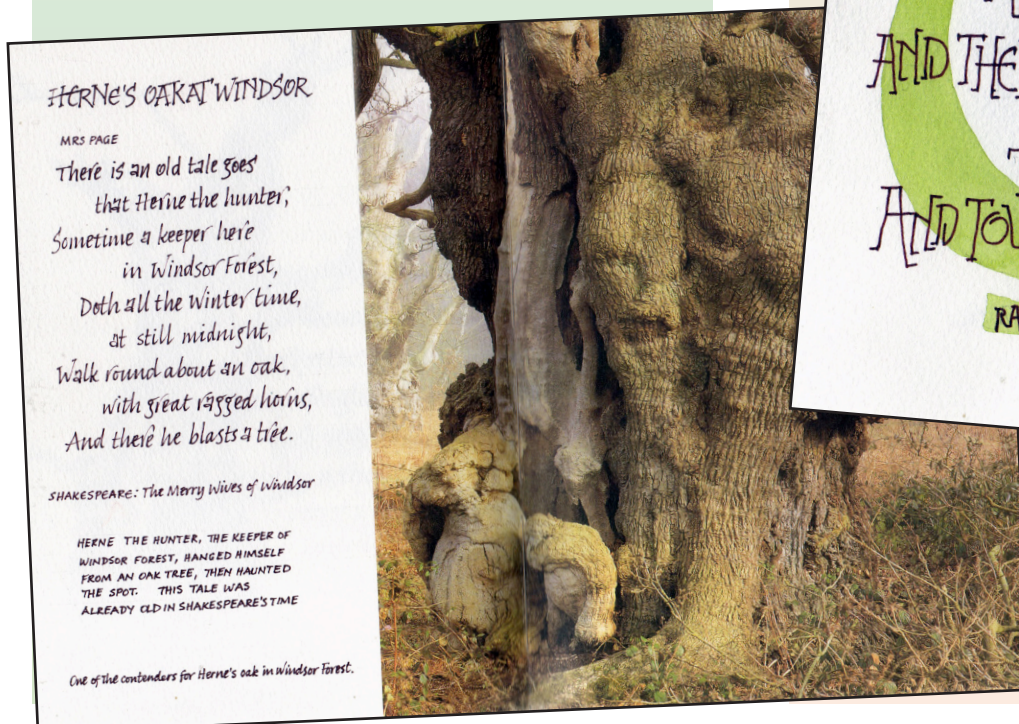 HERNE'S OAK AT WINDSOR
MRS PAGE
There is an old tale goes
that Herne the hunter,
Sometime a keeper here
in Windsor Forest,
Doth all the winter time,
at still midnight,
Walk round about an oak,
with great ragged horns,
And there he blasts a tree.
SHAKESPEARE: The Merry Wives of Windsor
HERNE THE HUNTER, THE KEEPER OF
WINDSOR FOREST, HANGED HIMSELF
FROM AN OAK TREE, THEN HAUNTED
THE SPOT. THIS TALE WAS
ALREADY OLD IN SHAKESPEARE'S TIME
One of the contenders for Herne's oak in Windsor Forest.
AND THE
AND TOU
RA